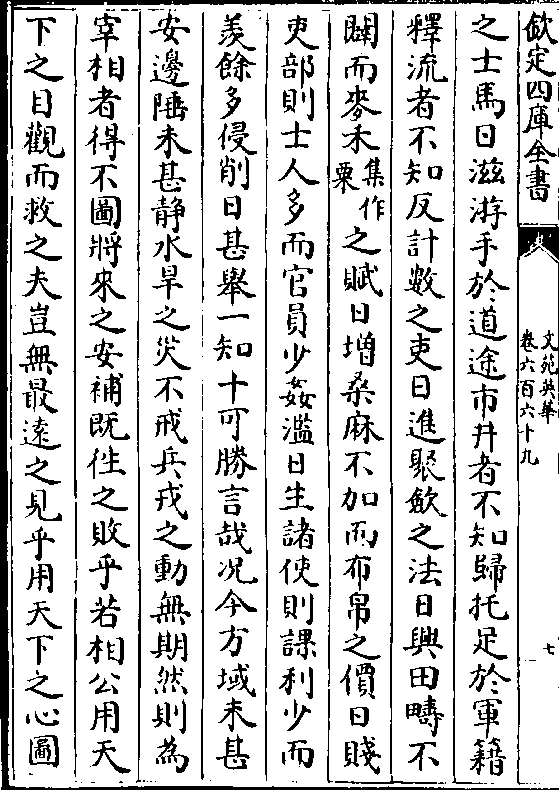 欽定四庫全書
文苑英華
卷六百六十九
七
之士馬日滋游手於道途市井者不知歸托足於軍籍
釋流者不知反計數之吏日進聚歛之法日興田疇不
闢而麥禾集作粟之賦日增桑麻不加而布帛之價日賤
吏部則士人多而官員少姦濫日生諸使則課利少而
羨餘多侵削日甚舉一知十可勝言哉况今方域未甚
安邊陲未甚静水旱之災不戒兵戎之動無期然則為
宰相者得不圖將來之安補既徃之敗乎若相公用天
下之目觀而救之夫豈無最遠之見乎用天下之心圖